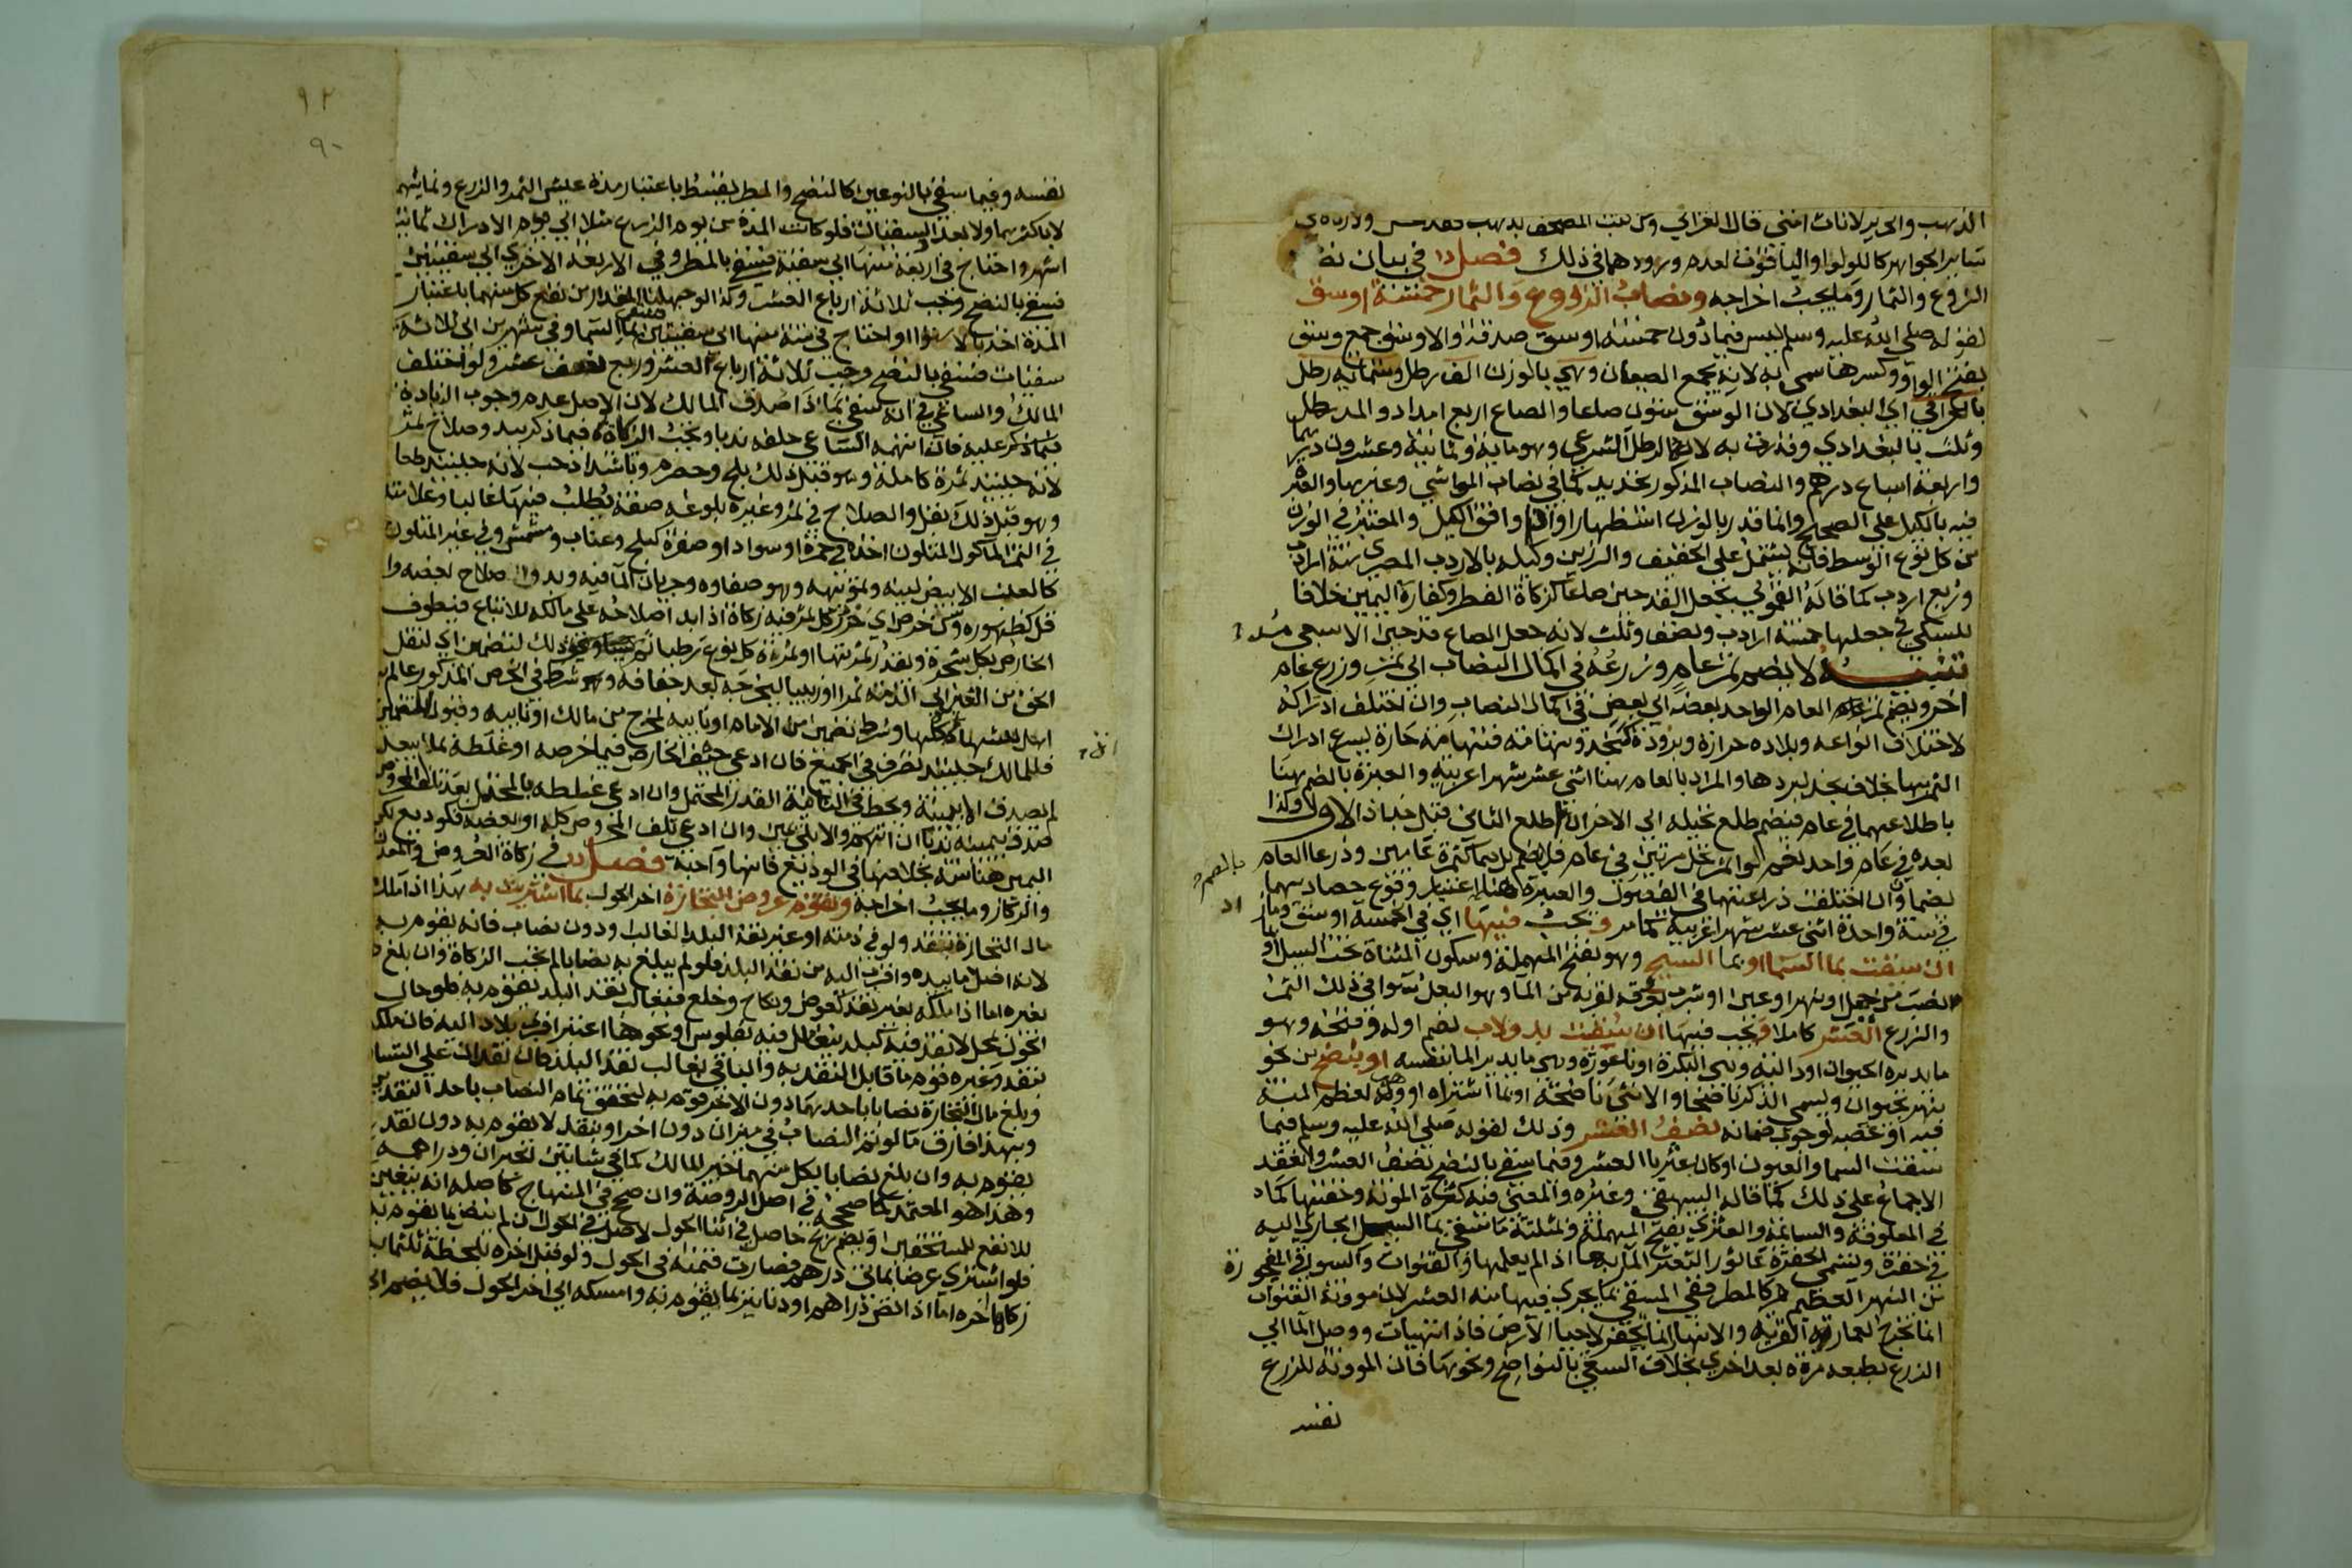 الذهب والحرير لانات انتهى قال الغزالي ومن كتب المصحف بذهب فقد حسن ولا زكاة في
سائر الجواهر كاللؤلؤ والياقوت لعدم ورودها في ذلك فصل في بيان نصا
الزروع والثمار وما يجب اخراجه ونصاب الزروع والثمار خمسة اوسق
لقوله صلى الله عليه وسلم ليس فيما دون خمسة اوسق صدقة والاوسق جمع وسق
بفتح الواو وكسرها سمى به لانه يجمع الصيعان وهي بالوزن الف رطل وستماية رطل
بالعراقي اي البغدادي لان الوسق ستون صاعا والصاع اربع امداد والمد رطل
وثلث بالبغدادي وقدرت به لانه الرطل الشرعي وهو ماية وثمانية وعشرون درهما
واربعة اسباع درهم والنصاب المذكور تحديد كما في نصاب المواشي وغيرها والعبرة
فيه بالكيل على الصحيح وانما قدر بالوزن استظهارا او اذا وافق الكيل والمعتبر في الوزن
من كل نوع الوسط فانه يشتمل على الخفيف والرزين وكيله بالاردب المصري ستة ارادب
وربع اردب كما قاله القمولي بجعل القدحين صاعا كزكاة الفطر وكفارة اليمين خلافا
للسبكي في جعلها خمسة ارادب ونصف وثلث لانه جعل الصاع قدحين الا سبعي مد
تنبيه لا يضم ثمر عام وزرعه في اكمال النصاب الى ثمر وزرع عام
اخر ويضم ثمر العام الواحد بعضه الى بعض في اكمال النصاب وان اختلف ادراكه
لاختلاف انواعه وبلاده حرارة وبرودة كنجد وتهامة فتهامة حارة يسرع ادراك
الثمر بها بخلاف نجد لبردها والمراد بالعام هنا اثنى عشر شهرا عربية والعبرة بالضم هنا
باطلاعهما في عام فيضم طلع نخيله الى الاخر ان اطلع الثاني قبل جذاذ الاول وكذا
بعده في عام واحد نعم لو اثمر نخل مرتين في عام فلا يضم بل هما كثمرة عامين وزرعا العام
يضمان وان اختلفت زراعتهما في الفصول والعبرة هنا اعتبار وقوع حصاديهما
في سنة واحدة اثنى عشر شهرا عربية كما مر ويجب فيها اي في الخمسة اوسق وما زاد
ان سقيت بماء السماء او بماء السيح وهو بفتح المهملة وسكون المثناة تحت السيل او ما
انصب من جبل او نهر او عين او شرب بعروقه لقربه من الماء وهو البعل سواء في ذلك الثمر
والزرع العشر كاملا ويجب فيها ان سقيت بدولاب بضم اوله وفتحه وهو
ما يديره الحيوان او دالية وهي البكرة او ناعورة وهي ما يديره الماء بنفسه او بنضح من نحو
نهر بحيوان ويسمى الذكر ناضحا والانثى ناضحة او بماء اشتراه او وهب لعظم المنة
فيه او غصبه لوجوب ضمانه نصف العشر وذلك لقوله صلى الله عليه وسلم فيما
سقت السماء والعيون او كان عثريا العشر وفيما سقي بالنضح نصف العشر وانعقد
الاجماع على ذلك كما قاله البيهقي وغيره والمعنى فيه كثرة المونة وخفتها كما
في المعلوفة والسائمة والعثري بفتح المهملة والمثلثة ما سقي بماء السيل الجاري اليه
في حفرة وتسمى الحفرة عاثورا لتعثر المار بها اذا لم يعلمها والقنوات والسواقي المحفورة
من النهر العظيم كالمطر ففي المسقي بما يجري فيها منه العشر لان موونة القنوات
انما تخرج لعمارة القرية والانهار انما تحفر لاحياء الارض فاذا تهيات ووصل الماء الى
الزرع بطبعه مرة بعد اخرى بخلاف السقي بالنواضح ونحوها فان الموونة للزرع
نفسه
٩٢
٩٠
نفسه وفيما سقي بالنوعين كالنضح والمطر يقسط باعتبار مدة عيش الثمر والزرع ونمائهما
لا باكثرهما ولا بعدد السقيات فلو كانت المدة من يوم الزرع مثلا الى يوم الادراك ثمانية
اشهر واحتاج في اربعة منها الى سقية فسقي بالمطر وفي الاربعة الاخرى الى سقيتين
فسقي بالنضح وجب ثلاثة ارباع العشر وكذا لو جهلنا المقدار من نفع كل منهما باعتبار
المدة اخذا بالاسوا او احتاج في ستة منها الى سقيتين فسقي بماء السماء وفي شهرين الى ثلاثة
سقيات فسقي بالنضح وجب ثلاثة ارباع العشر وربع نصف عشر ولو اختلف
المالك والساعي في انه سقي بماذا صدق المالك لان الاصل عدم وجوب الزيادة
عليه فان اتهمه الساعي حلفه ندبا وتجب الزكاة فيما ذكر ببدو صلاح ثمر
لانه حينئذ ثمرة كاملة وهو قبل ذلك بلح وحصرم وباشتداد حب لانه حينئذ طعام
وهو قبل ذلك بقل والصلاح في ثمر وغيره بلوغه صفة يطلب فيها غالبا وعلامته
في الثمر الماكول المتلون اخذه في حمرة او سواد او صفرة كبلح وعناب ومشمش وفي غير المتلون
كالعنب الابيض لينه وتمويهه وهو صفاوه وجريان الماء فيه وبدو صلاح بعضه وان
قل كظهوره وسن خرص اي حزر كل ثمر فيه زكاة اذا بدا صلاحه على مالكه للاتباع فيطوف
الخارص بكل شجرة ويقدر ثمرتها او ثمرة كل نوع رطبا ثم يابسا وذلك لتضمين اي لنقل
الحق من العين الى الذمة تمرا او زبيبا ليخرجه بعد جفافه وشرط في الخرص المذكور عالم به
اهل للشهادات كلها وشرط تضمين من الامام او نايبه لمخرج من مالك او نايبه وقبول للتضمين
فللمالك حينئذ تصرف في الجميع فان ادعى حيف الخارص فيما خرصه او غلطه بما يبعد
لم يصدق الا ببينة ويحط في الثانية القدر المحتمل وان ادعى غلطه بالمحتمل بعد تلف المخروص
صدق بيمينه ندبا ان اتهم والا بلا يمين وان ادعى تلف المخروص كله او بعضه فكوديع لكن
اليمين هنا سنة بخلافها في الوديع فانها واجبة فصل في زكاة العروض والمعدن
والركاز وما يجب اخراجه وتقوم عروض التجارة اخر الحول بما اشتريت به هذا اذا ملك
مال التجارة بنقد ولو في ذمته او غير نقد البلد الغالب او دون نصاب فانه يقوم به
لانه اصل ما بيده واقرب اليه من نقد البلد فلو لم يبلغ به نصابا لم تجب الزكاة وان بلغ
بغيره اما اذا ملكه بغير نقد كعوض ونكاح وخلع فبغالب نقد البلد يقوم به فلو حال
الحول بمحل لا نقد فيه كبلد يتعامل فيه بفلوس او نحوها اعتبر اقرب بلاد اليه فان ملك
بنقد وغيره قوم ما قابل النقد به والباقي بغالب نقد البلد فان غلب نقدان على التساوي
وبلغ مال التجارة نصابا باحدهما دون الاخر قوم به لتحقق تمام النصاب باحد النقدين
وبهذا فارق ما لو تم النصاب في ميزان دون اخر او بنقد لا يقوم به دون نقد
يقوم به وان بلغ نصابا بكل منهما خير المالك كما في شاتين الجبران ودراهمه
وهذا هو المعتمد كما صححه في اصل الروضة وان صحح في المنهاج كاصله انه يتعين
للانفع للمستحقين ويضم ربح حاصل في اثناء الحول لاصل في الحول ان لم ينض بما يقوم به
فلو اشترى عرضا بمايتي درهم فصارت قيمته في الحول ولو قبل اخره بلحظة ثلثمايه
زكاها اخره اما اذا نض دراهم او دنانير بما يقوم به وامسكه الى اخر الحول فلا يضم الى